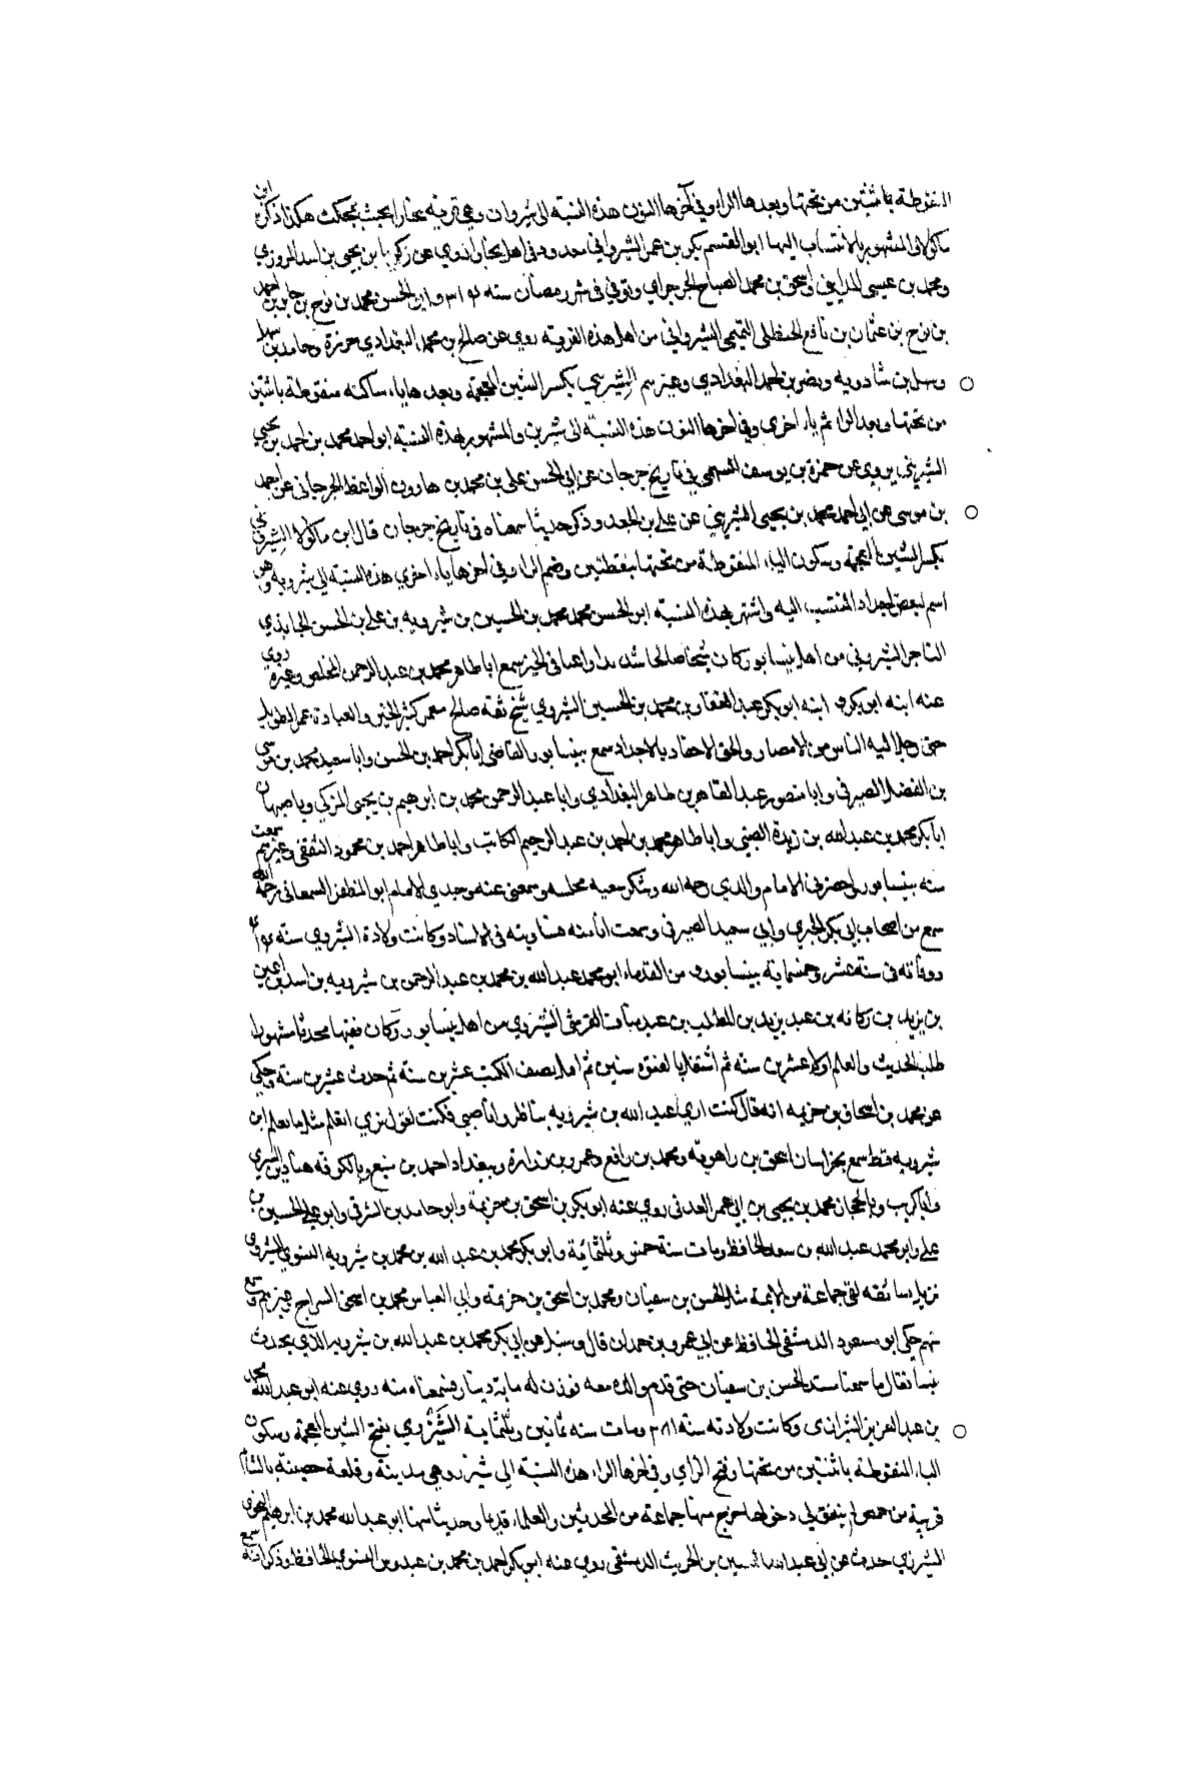 المنقوطة باثنتين من تحتها وبعدها الراء وفي آخرها النون هذه النسبة الى شيروان وهي قرية بخارا بجنب بمجكث هكذا ذكره ابن
ماكولا والمشهور بالانتساب اليها ابو القسم بكر بن عمر الشيرواني معدود في اهل بخارا يروي عن زكريا بن يحيى بن اسد المروزي
ومحمد بن عيسى المدايني واسحق بن محمد الصباح الجرجراي وتوفي في شهر رمضان سنه ٣١٤ وابو الحسن محمد بن نوح بن صالح بن احمد
بن نوح بن عثمان بن نافع الحنظلي التميمي الشيرواني من اهل هذه القرية روي عن صالح بن محمد البغدادي جزرة وحامد بن سهل
وسهل بن شادويه ونصر بن احمد البغدادي وغيرهم الشيريني بكسر الشين المعجمة وبعدها ياء ساكنه منقوطة باثنتين
من تحتها وبعد الراء ثم ياء اخرى وفي اخرها النون هذه النسبة الى شيرين والمشهور بهذه النسبة ابو احمد محمد بن احمد بن يحيى
الشيريني يروي عن حمزة بن يوسف السهمي في تاريخ جرجان عن ابي الحسن علي بن محمد بن هارون الواعظ الجرجاني عن احمد
بن موسى عن ابي احمد محمد بن يحيى الشيريني عن علي بن الجعد وذكر حديثا سمعناه في تاريخ جرجان قال ابن ماكولا الشيرويي
بكسر الشين المعجمة وسكون الياء المنقوطة من تحتها بنقطتين وضم الراء وفي اخرها ياء اخري هذه النسبة الى شيرويه وهو
اسم لبعض اجداد المنتسب اليه واشتهر بهذه النسبة ابو الحسن محمد محمد بن الحسين بن شيرويه بن علي بن الحسن الجنابذي
التاجر الشيرويي من اهل نيسابور كان شيخا صالحا سمع ابا طاهر محمد بن عبد الرحمن المخلص وغيره روي
عنه ابنه ابو بكر و ابنه ابو بكر عبد الغفار بن محمد بن الحسين الشيروي شيخ ثقه صالح معمر كثير الخير والعبادة عمر الطويل
حتى رحل اليه الناس من الامصار والحق الاحفاد بالاجداد سمع بنيسابور القاضي ابا بكر احمد بن الحسن وابا سعيد محمد بن موسى
بن الفضل الصيرفي وابا منصور عبد القاهر بن طاهر البغدادي وابا عبد الرحمن محمد بن ابرهيم بن يحيى المزكي وباصبهان
ابا بكر محمد بن عبد الله بن زيدة الضبي وابا طاهر محمد بن احمد بن عبد الرحيم الكاتب وابا طاهر احمد بن محمود الثقفي وغيرهم سمعت
منه بنيسابور احضرني الامام والدي رحمه الله وشكر سعيه مجلسه وسمعني عنه وجدي الامام ابو المظفر السمعاني رحمة الله
سمع من اصحاب ابي بكر الحيري وابي سعيد الصيرفي وسمعت انا منه فساويته في الاسناد وكانت ولادة الشيروي سنة
ووفاته في سنة عشر وخمسماية بنيسابور و من القدماء ابو محمد عبد الله بن محمد بن عبد الرحمن بن شيرويه بن اسد بن اعين
بن يزيد بن ركانه بن عبد يزيد بن المطلب بن عبد مناف القرشي الشيروي من اهل نيسابور وكان فقيها محدثا مشهورا
طلب الحديث والعلم اولا عشرين سنة ثم اشتغل بالفتوه سنين ثم املى بصنف الكتب عشرين سنة ثم حدث عشرين سنة وحكي
عن محمد بن اسحاق بن خزيمه انه قال كنت اري عبد الله بن شيرويه يناظر وانا صبي فكنت اقول تري اتعلم مثل ما تعلم ابن
شيرويه قط سمع بخراسان اسحق بن راهويه ومحمد بن رافع وعمرو بن زرارة وببغداد احمد بن منيع وبالكوفه هناد بن السري
وابا كريب وبالحجاز محمد بن يحيى بن ابي عمر العدني روي عنه ابو بكر بن اسحق بن خزيمة وابو حامد بن الشرقي وابو علي الحسين بن
علي وابو محمد عبد الله بن سعد الحافظ ومات سنة خمس وثلثمائة وابو بكر محمد بن عبد الله بن محمد بن شيرويه النسوي الشيروي
نزيل نسا ثقه لقي جماعة من الايمة مثل الحسن بن سفيان ومحمد بن اسحق بن خزيمة وابي العباس محمد بن اسحق السراج وغيرهم سمع
منهم حكى ابو مسعود الدمشقي الحافظ عن ابي عمرو بن حمدان قال وسئل عن ابي بكر محمد بن عبد الله بن شيرويه الذي يحدث
بنسا فقال ما سمعنا مسند الحسن بن سفيان حتى قدم والده معه فوزن له ماية دينار فسمعناه منه روي عنه ابو عبد الله محمد
بن عبد العزيز الشيرازي وكانت ولادته سنة ٢٨١ ومات سنه ثمانين وثلثماية الشيزري بفتح الشين المعجمة وسكون
الياء المنقوطة باثنتين من تحتها وفتح الزاي وفي اخرها الراء هذه النسبة الي شيزر وهي مدينة وقلعة حصينة بالشام
قريبة من حمص لم يتفق لي دخولها خرج منها جماعة من المحدثين والعلماء قديما وحديثا منها ابو عبد الله محمد بن ابرهيم النحوي
الشيزري حدث عن ابي عبد الله الحسين بن الحريث الدمشقي روي عنه ابو بكر احمد بن محمد بن عبدوس النسوي الحافظ وذكر انه سمع